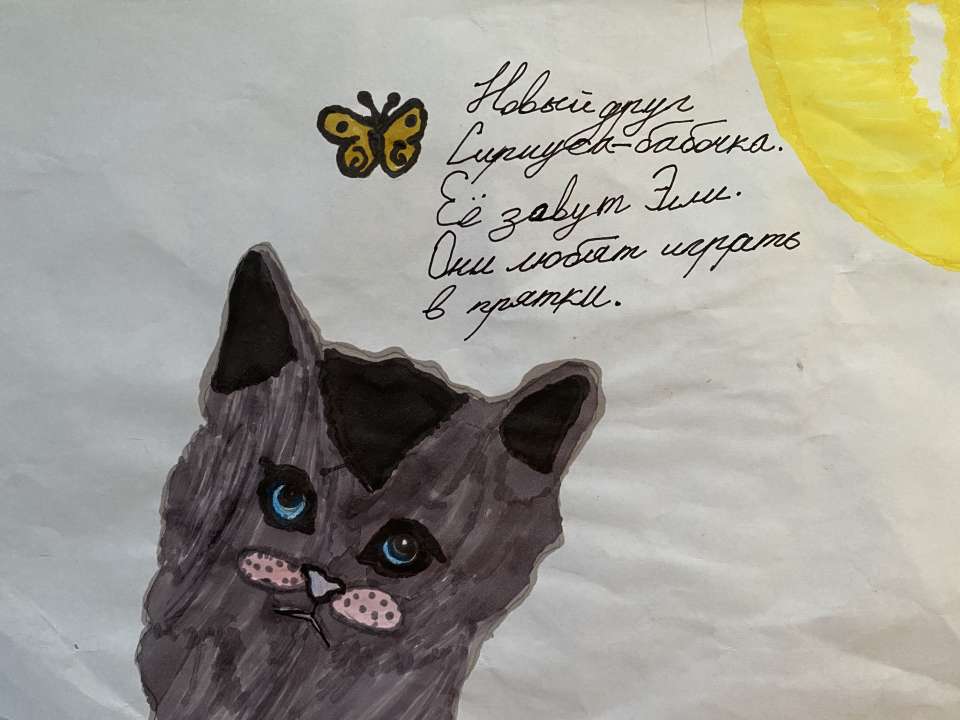 Новый друг
Сириуса-бабочка.
Её завут Эли.
Они любят играть
в прятки.